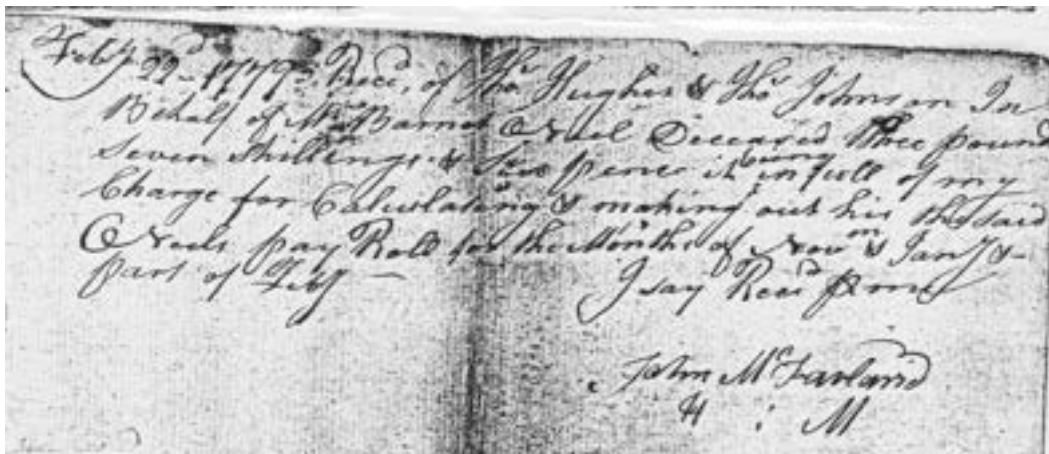 Feby 22d 1779 Recd, of Thos Hughes & Thos Johnson In
Behalf of Barnet ONeel Deceased three pound
Seven Shillings & Six pence it being in full of my
Charge for Calculating & making out his the said
ONeels pay Roll for the Months of & Jany &
part of Feby — I say Recd p me
John McFarland
H : M